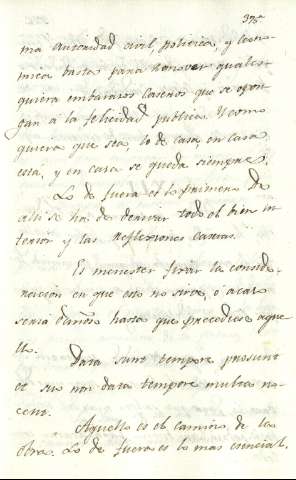 375
ma autoridad civil, politica, y econo-
mica basta para remover quales-
quiera embarazos caseros que se opon-
gan à la felicidad publica. Y como
quiera que sea, lo de casa, en casa
està, y en casa se queda siempre.
Lo de fuera es lo primero. De
alli se ha de derivar todo el bien in-
terior y las reflexiones caseras.
Es menester fixar la conside-
racion en que esto no sirve, ò acaso
seria dañoso hasta que precediese aque-
llo.
Data sunt tempore prosunt
et sua non data tempore multa no-
cent.
Aquello es el camino de la
obra. Lo de fuera es lo mas esencial.